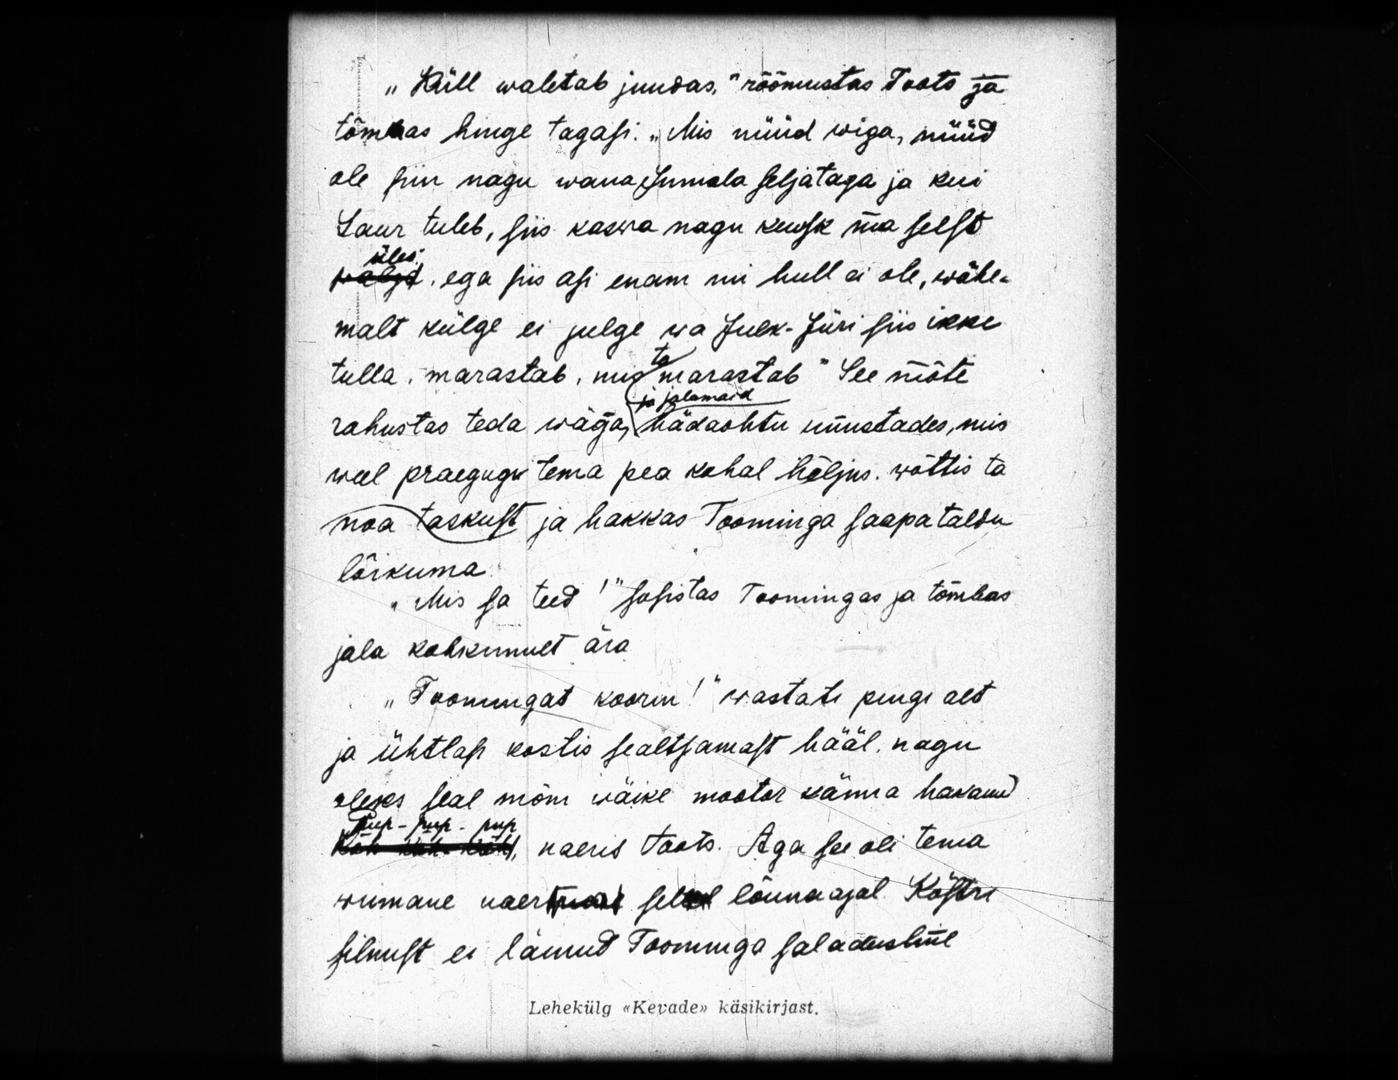 „Küll waletab juudas,“ rõõmustas Toots ja
tõmbas hinge tagasi. „Mis nüüd wiga, nüüd
ole siin nagu wana Jumala seljataga ja kui
Laur tuleb, siis kaswa nagu kuusk ma seest
üles:
ega siis asi enam nii hull ei ole, wähe-
malt külge ei julge wa Julk-Jüri siis ikke
tulla, marastab, mis ta marastab“ See mõte
ja jalamaid
rahustas teda wäga, hädaohtu unustades, mis
weel praegugi tema pea kohal hõljus. wõttis ta
noa taskust ja hakkas Toominga saapa talda
lõikuma.
„Mis sa teed!“ sosistas Toomingas ja tõmbas
jala kohkunult ära
„Toomingat koorin!“ wastati pingi alt
ja ühtlasi kostis sealtsamast hääl, nagu
oleks seal mõni wäike mootor käima hakanud
Pup-pup-pup
naeris Toots. Aga see oli tema
wiimane naer sel lõunaajal. Köstri
silmist ei läinud Toominga saladusline
Lehekülg «Kevade» käsikirjast.